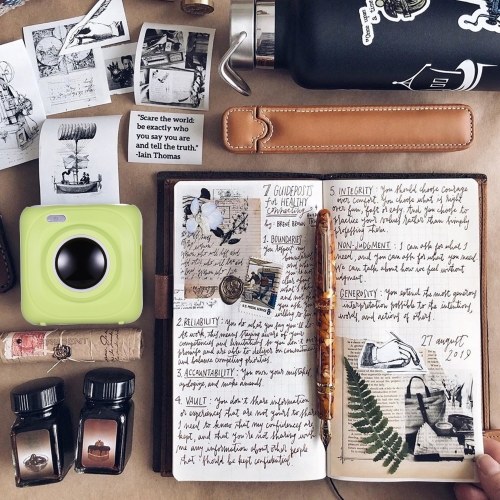 "Scare the world:
be exactly who
you say you are
and tell the truth."
-Iain Thomas
7 GUIDEPOSTS
for HEALTHY
connecting
by: BRENÉ BROWN
1. BOUNDARIES
You respect
2. RELIABILITY: You do what you say you'll
do. At work, this means staying aware of your
competencies and limitations so you don't over
promise and are able to deliver on commitments
and balance competing priorities.
3. ACCOUNTABILITY: You own your mistakes,
apologize, and make amends.
4. VAULT: You don't share information
or experiences that are not yours to share.
I need to know that my confidences are
kept, and that you're not sharing with
me any information about other people
that should be kept confidential.
5. INTEGRITY: You should choose courage
over comfort. You choose what is right
over fun, fast or easy. And you choose to
practice your values rather than simply
professing them.
NON-JUDGMENT: I can ask for what I
need, and you can ask for what you need.
We can talk about how we feel without
judgment.
GENEROSITY: You extend the most generous
interpretation possible to the intentions,
words, and actions of others.
27 august
2019